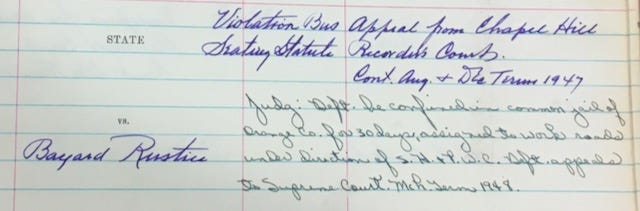 Violation Bus Appeal from Chapel Hill
STATE Seating Statute Recorder's Court.
Cont. Aug. & Dec Terms 1947
Judg: Deft. be confined in common jail of
vs. Orange Co. for 30 days, assigned to work roads
Bayard Rustin under direction of S. H. & P. W. C. Deft. appeals
to Supreme Court. Mch. Term 1948.